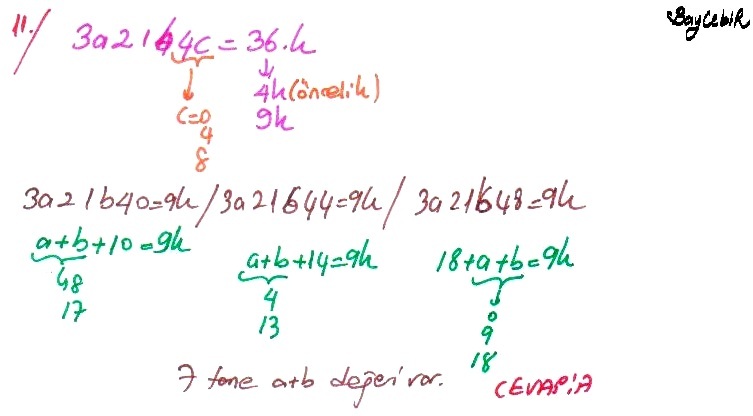 BayCebiR
11.) 3a21b4c = 36.k
4k (öncelik)
9k
c=0
4
8
3a21b40=9k / 3a21b44=9k / 3a21b48=9k
a+b+10=9k
8
17
a+b+14=9k
4
13
18+a+b=9k
0
9
18
7 tane a+b değeri var.
CEVAP:A